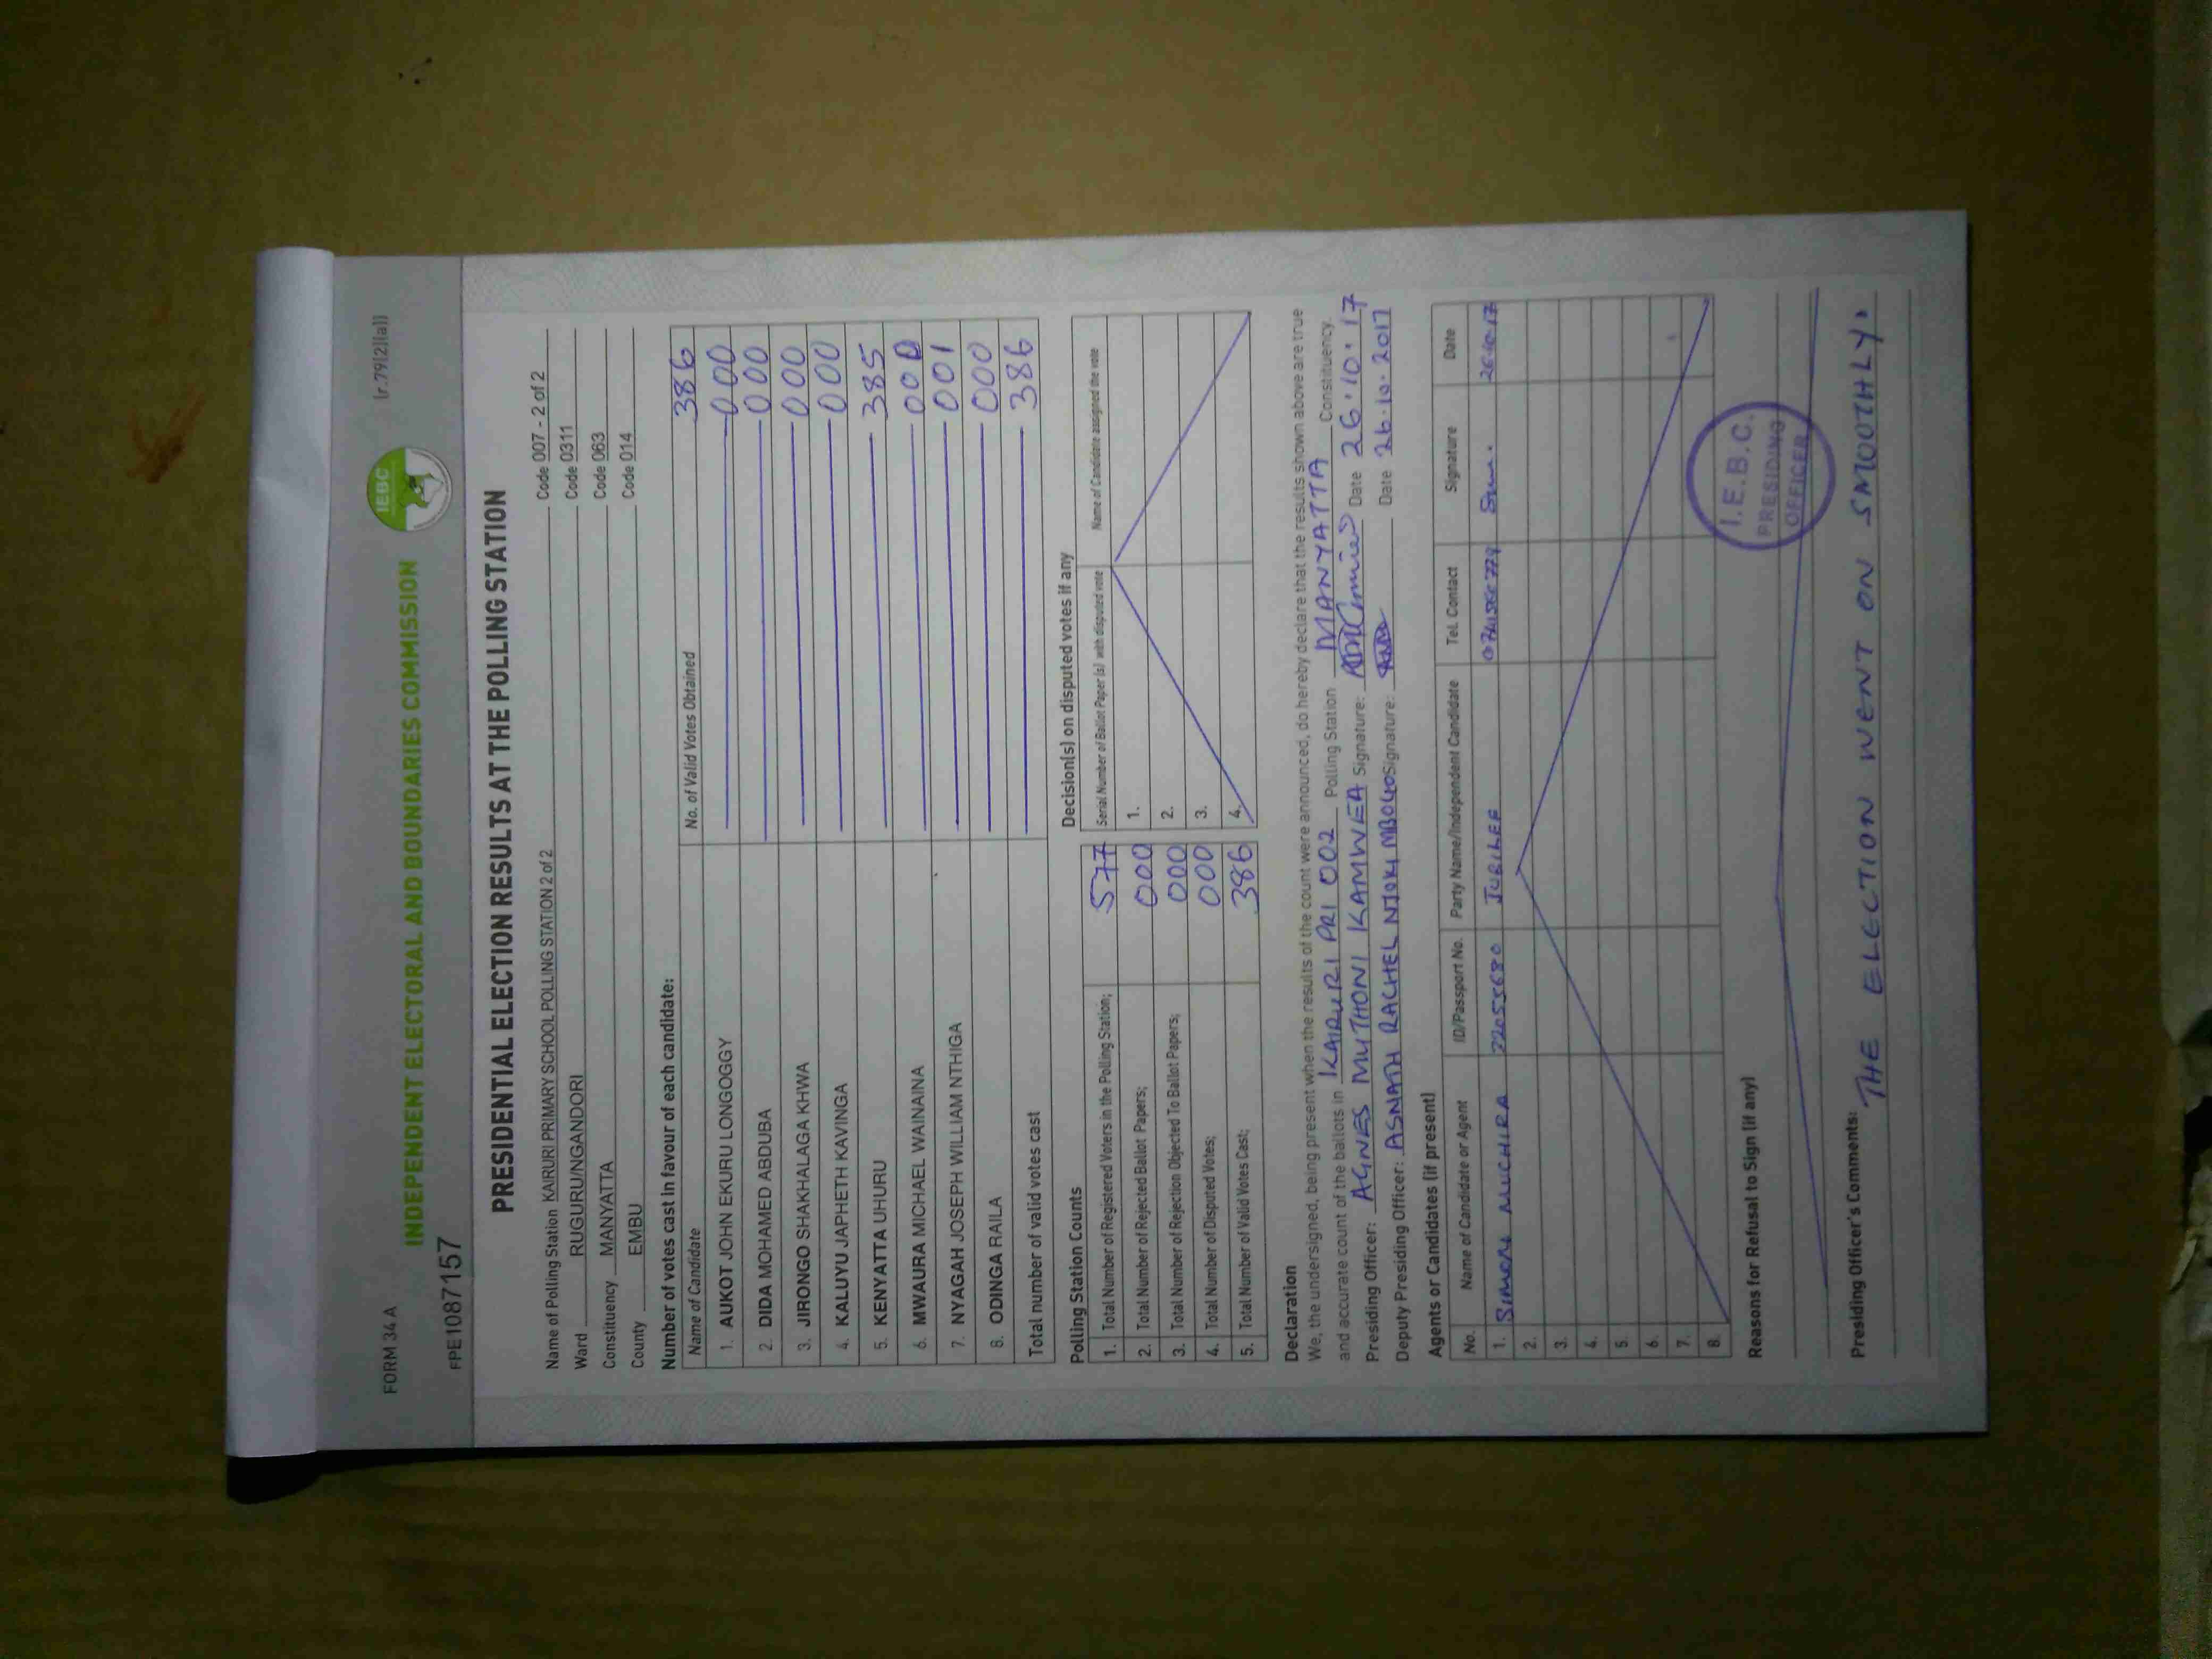 FORM 34 A
INDEPENDENT ELECTORAL AND BOUNDARIES COMMISSION
IEBC
(r.79(2)(a))
FPE1087157
PRESIDENTIAL ELECTION RESULTS AT THE POLLING STATION
Name of Polling Station KAIRURI PRIMARY SCHOOL POLLING STATION 2 of 2 Code 007 - 2 of 2
Ward RUGURU/NGANDORI Code 0311
Constituency MANYATTA Code 063
County EMBU Code 014
Number of votes cast in favour of each candidate:
Name of Candidate No. of Valid Votes Obtained 386
1. AUKOT JOHN EKURU LONGOGGY 000
2. DIDA MOHAMED ABDUBA 000
3. JIRONGO SHAKHALAGA KHWA 000
4. KALUYU JAPHETH KAVINGA 000
5. KENYATTA UHURU 385
6. MWAURA MICHAEL WAINAINA 000
7. NYAGAH JOSEPH WILLIAM NTHIGA 001
8. ODINGA RAILA 000
Total number of valid votes cast 386
Polling Station Counts
1. Total Number of Registered Voters in the Polling Station; 577
2. Total Number of Rejected Ballot Papers; 000
3. Total Number of Rejection Objected To Ballot Papers; 000
4. Total Number of Disputed Votes; 000
5. Total Number of Valid Votes Cast; 386
Decision(s) on disputed votes if any
Serial Number of Ballot Paper (s) with disputed vote Name of Candidate assigned the vote
1.
2.
3.
4.
Declaration
We, the undersigned, being present when the results of the count were announced, do hereby declare that the results shown above are true
and accurate count of the ballots in KAIRURI PRI 002 Polling Station MANYATTA Constituency.
Presiding Officer: AGNES MUTHONI KAMWEA Signature: Date 26.10.17
Deputy Presiding Officer: ASNATH RACHEL NJOKI MBOGO Signature: Date 26.10.2017
Agents or Candidates (if present)
No. Name of Candidate or Agent ID/Passport No. Party Name/Independent Candidate Tel. Contact Signature Date
1. MUCHIRA JUBILEE 26.10.17
2.
3.
4.
5.
6.
7.
8.
I.E.B.C.
PRESIDING
OFFICER
Reasons for Refusal to Sign (if any)
Presiding Officer's Comments:
THE ELECTION WENT ON SMOOTHLY.